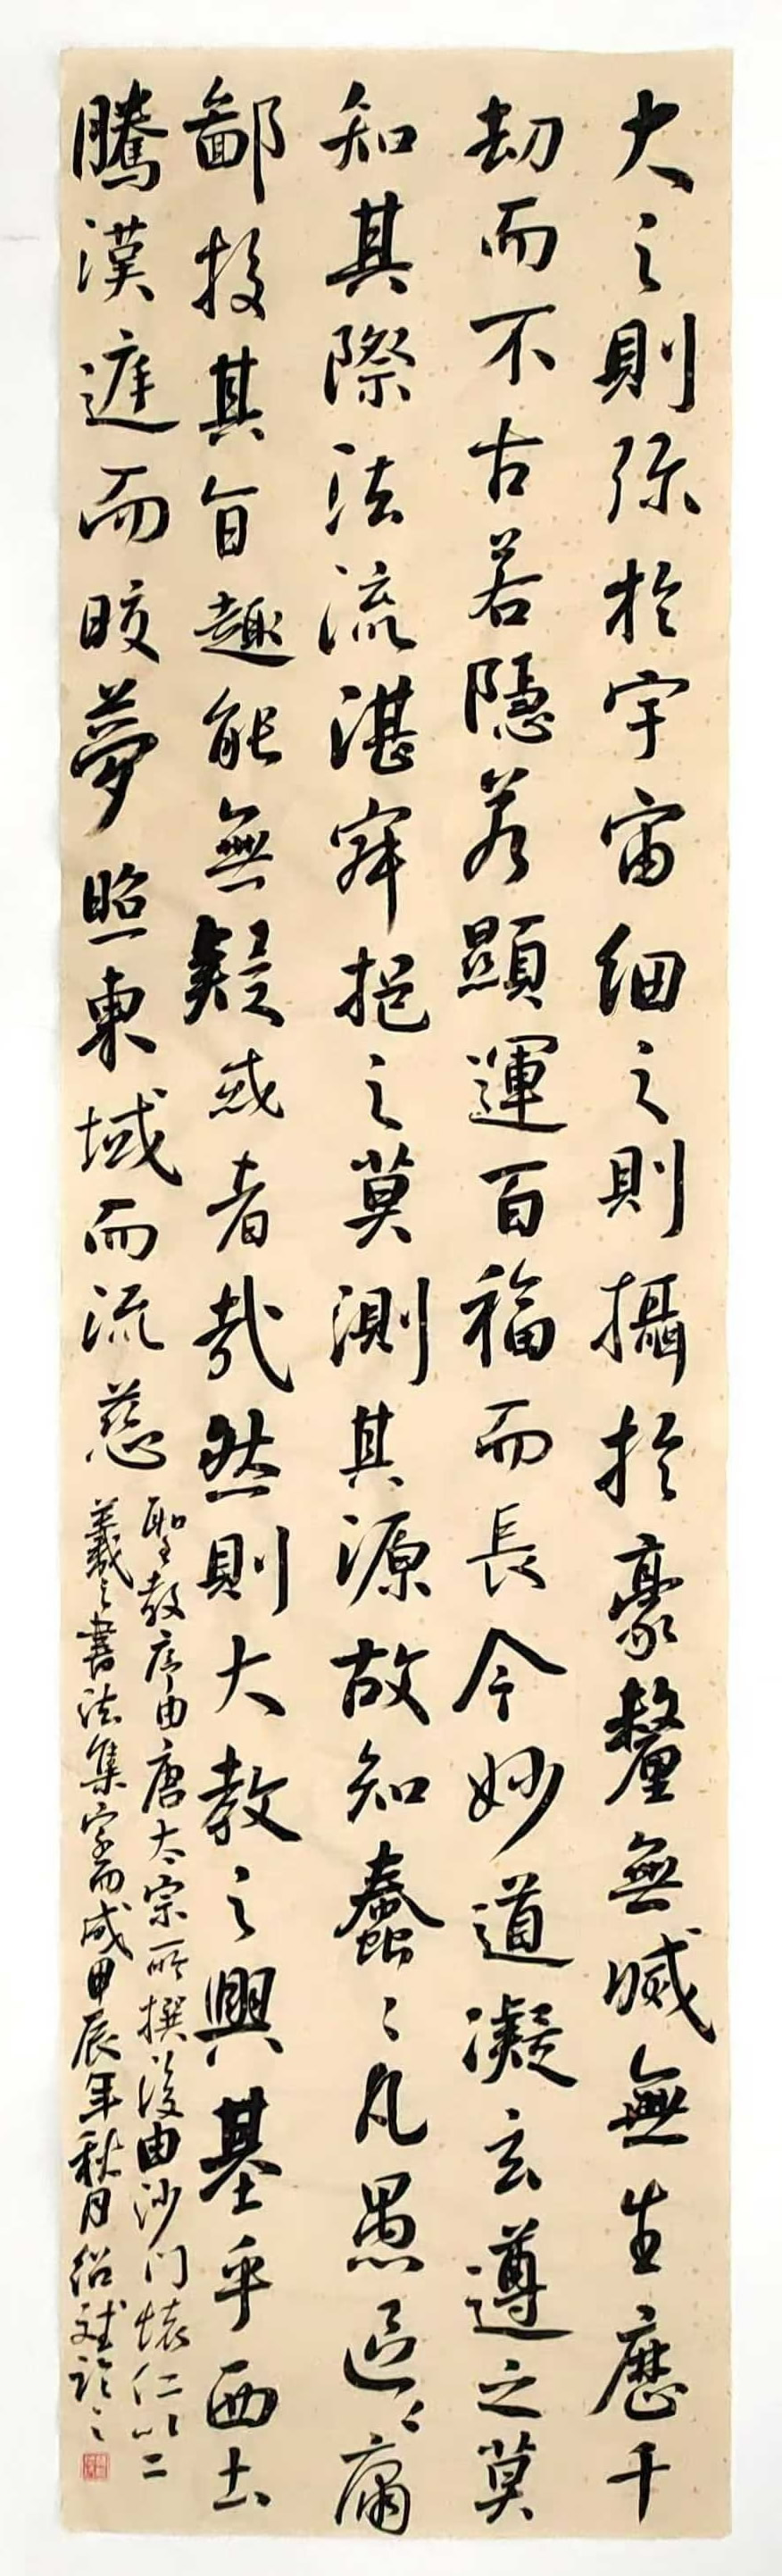 大之則弥於宇宙細之則攝於豪釐無滅無生歷千
劫而不古若隱若顯運百福而長今妙道凝玄遵之莫
知其際法流湛寂挹之莫測其源故知蠢々凡愚區々庸
鄙投其旨趣能無疑惑者哉然則大教之興基乎西土
騰漢庭而皎夢照東域而流慈
聖教序由唐太宗所撰後由沙门懐仁以二
羲之書法集字而成甲辰年秋月紹斌临之